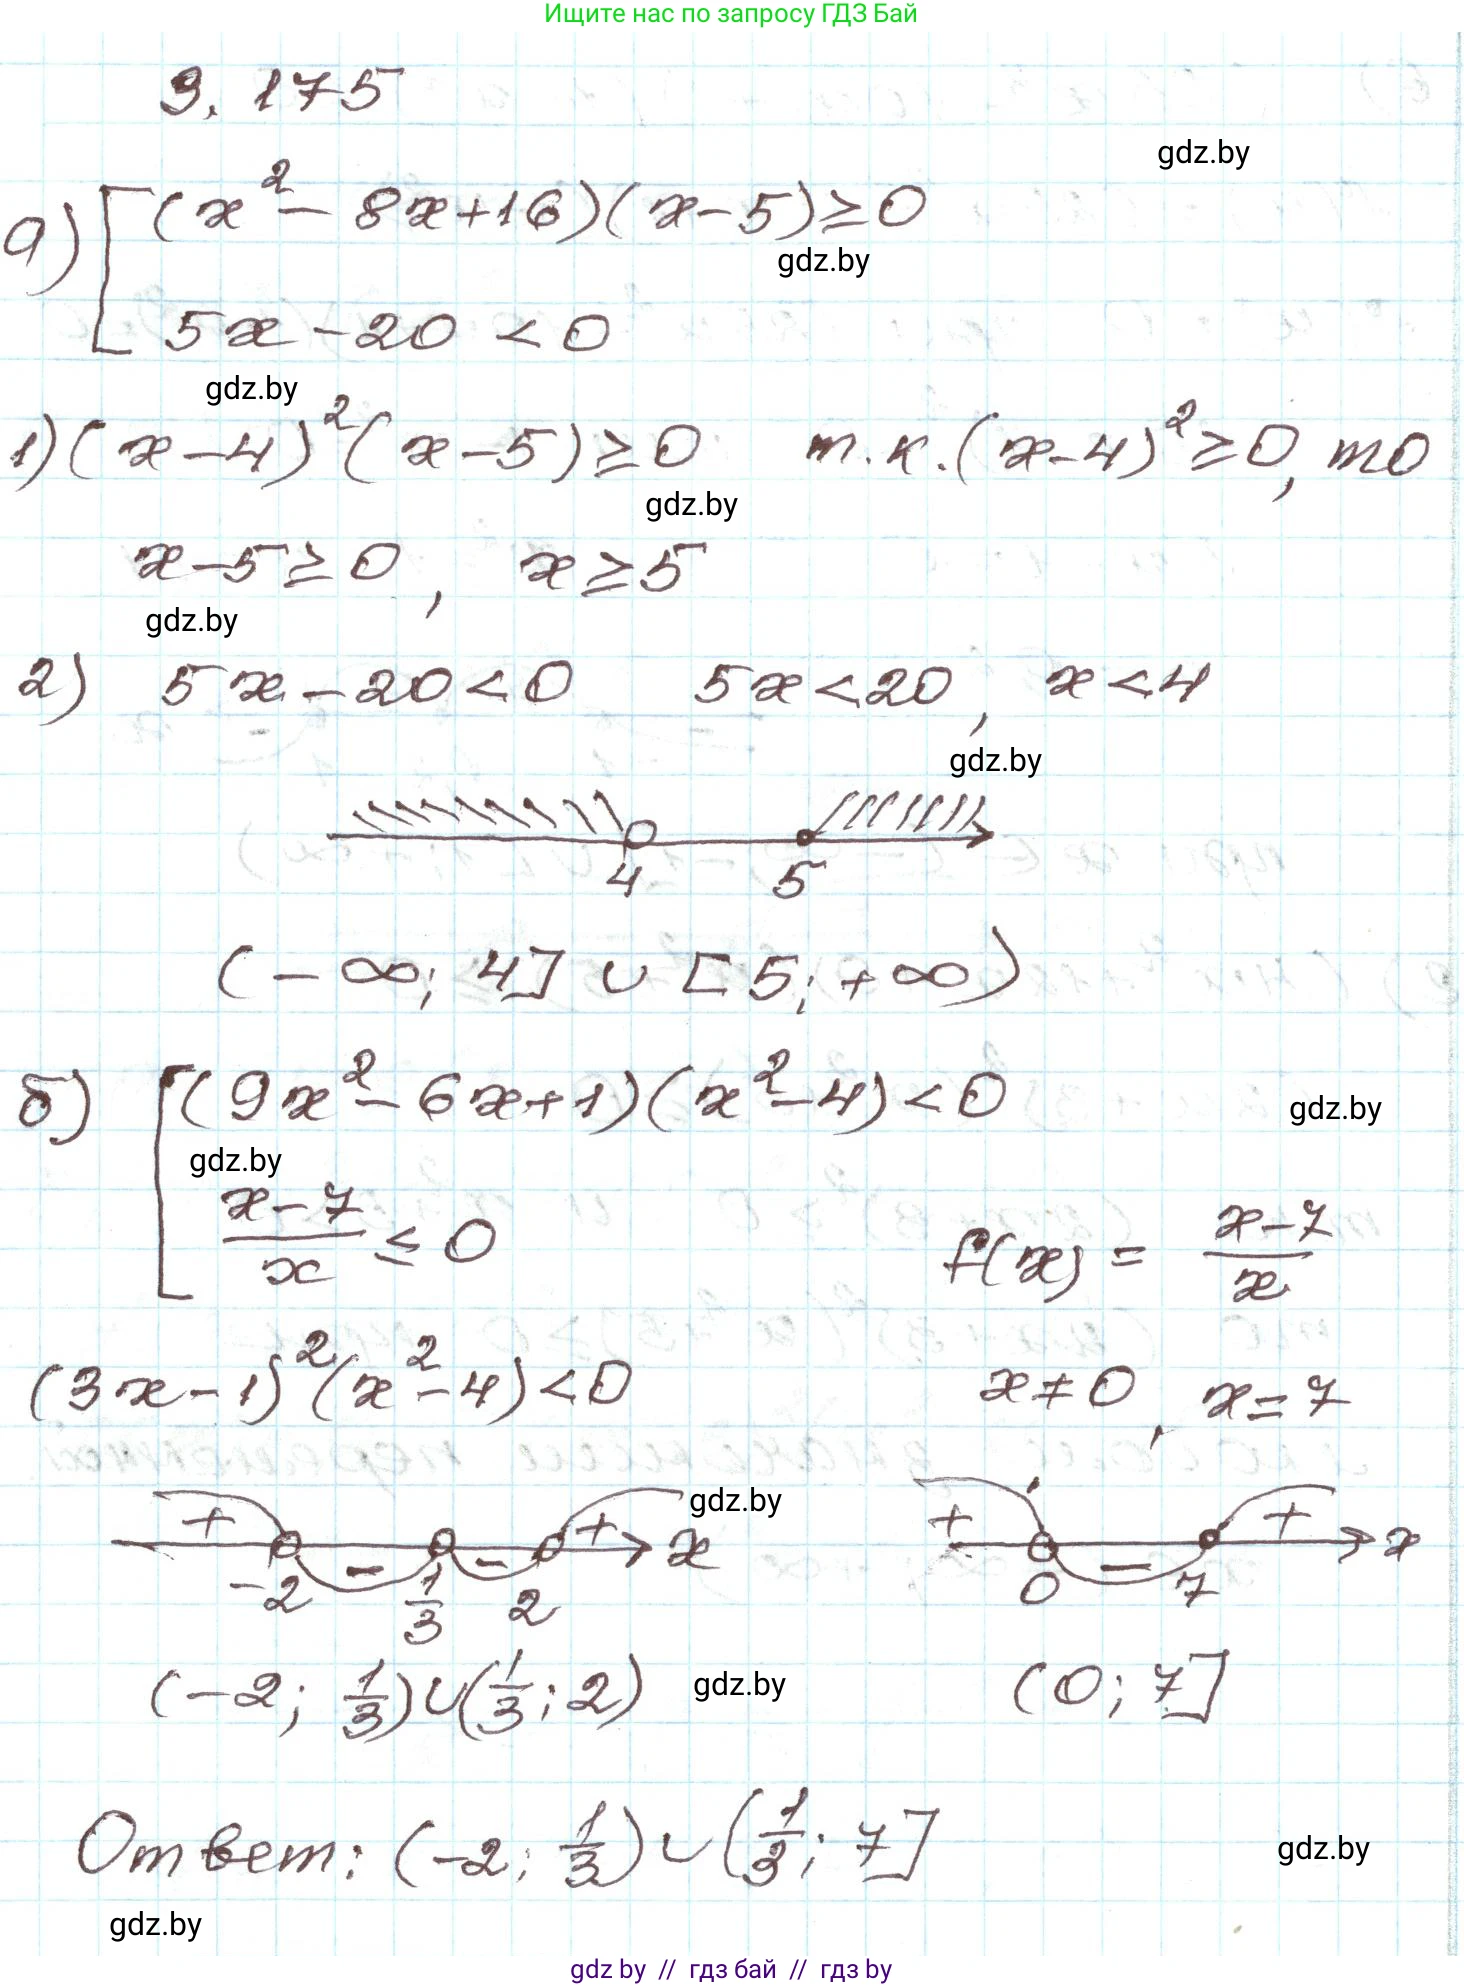 Ищите нас по запросу ГДЗ Бай
9.175
gdz.by
а) [ (x² - 8x + 16)(x - 5) ≥ 0
gdz.by
5x - 20 < 0
gdz.by
1) (x - 4)² (x - 5) ≥ 0 т.к. (x - 4)² ≥ 0, то
gdz.by
x - 5 ≥ 0, x ≥ 5
gdz.by
2) 5x - 20 < 0 5x < 20, x < 4
gdz.by
4 5
(-∞; 4] ∪ [5; +∞)
б) [ (9x² - 6x + 1)(x² - 4) < 0
gdz.by
gdz.by
(x - 7)/x ≤ 0 f(x) = (x - 7)/x
(3x - 1)² (x² - 4) < 0 x ≠ 0, x = 7
gdz.by
+ - - + x + - + x
-2 1/3 2 0 7
(-2; 1/3) ∪ (1/3; 2) gdz.by (0; 7]
Ответ: (-2; 1/3) ∪ (1/3; 7]
gdz.by
gdz.by
gdz by // гдз бай // гдз by